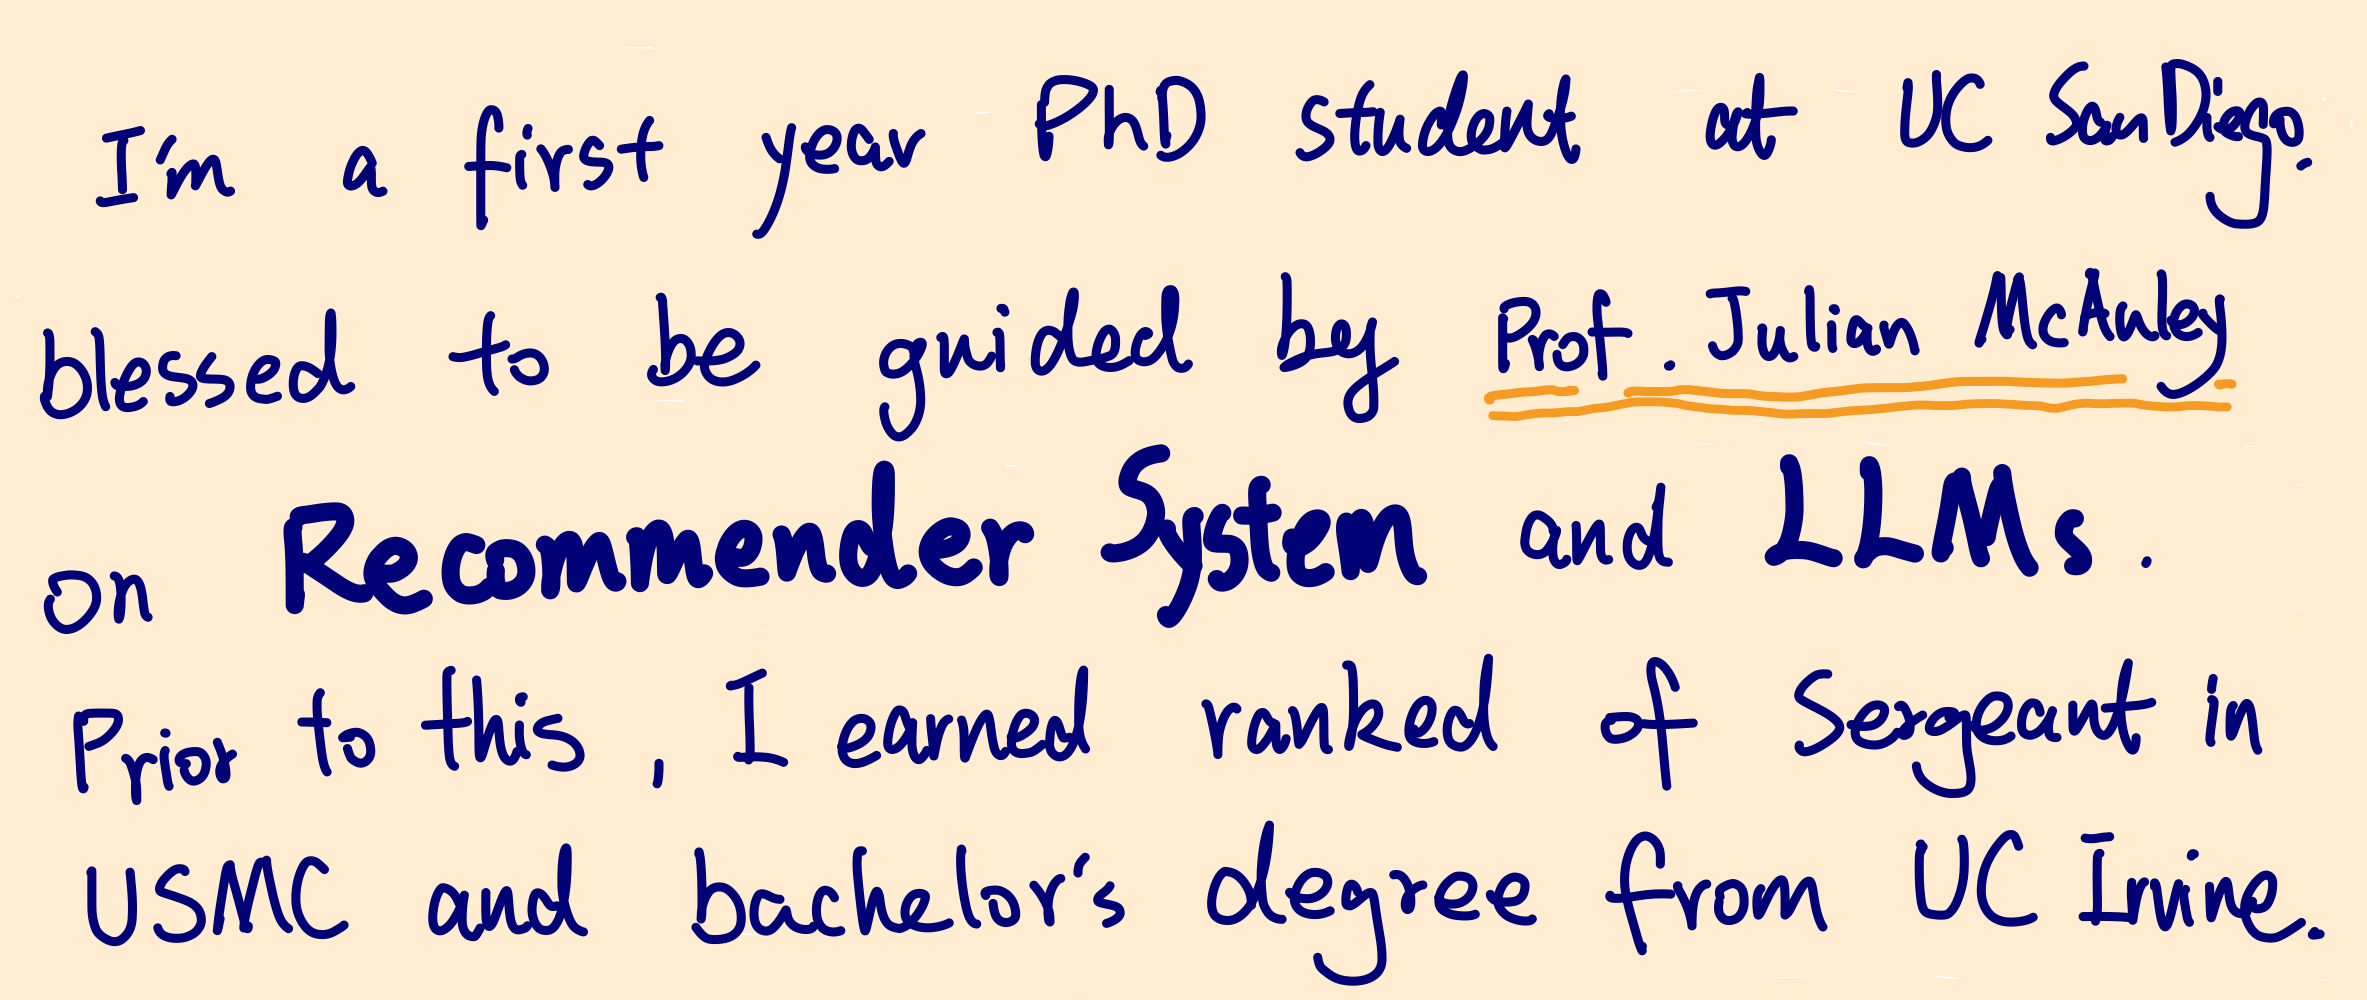 I'm a first year PhD student at UC San Diego.
blessed to be guided by Prof. Julian McAuley
on Recommender System and LLMs.
Prior to this, I earned ranked of Sergeant in
USMC and bachelor's degree from UC Irvine.